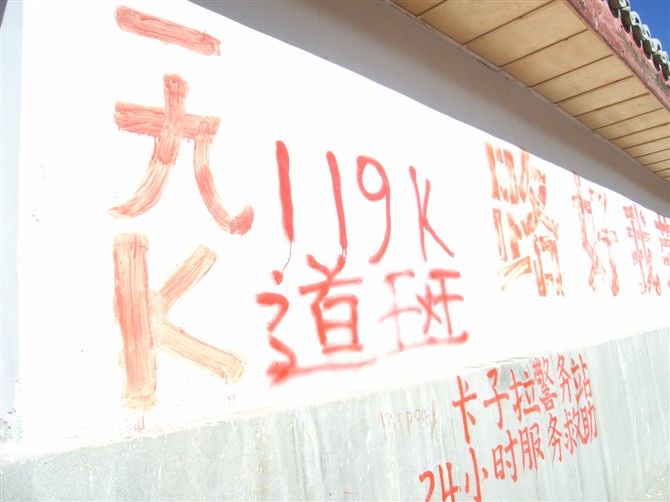 一九K
119K
道班
路好我
卡子拉警务站
24小时服务救助